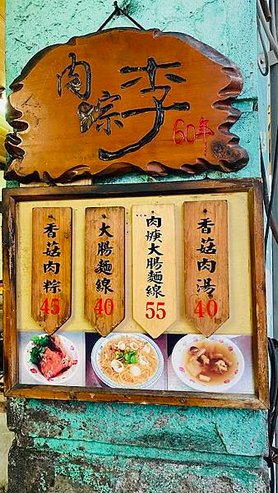 肉粽李
60年
香菇肉粽
45
大腸麵線
40
肉焿大腸麵線
55
香菇肉湯
40